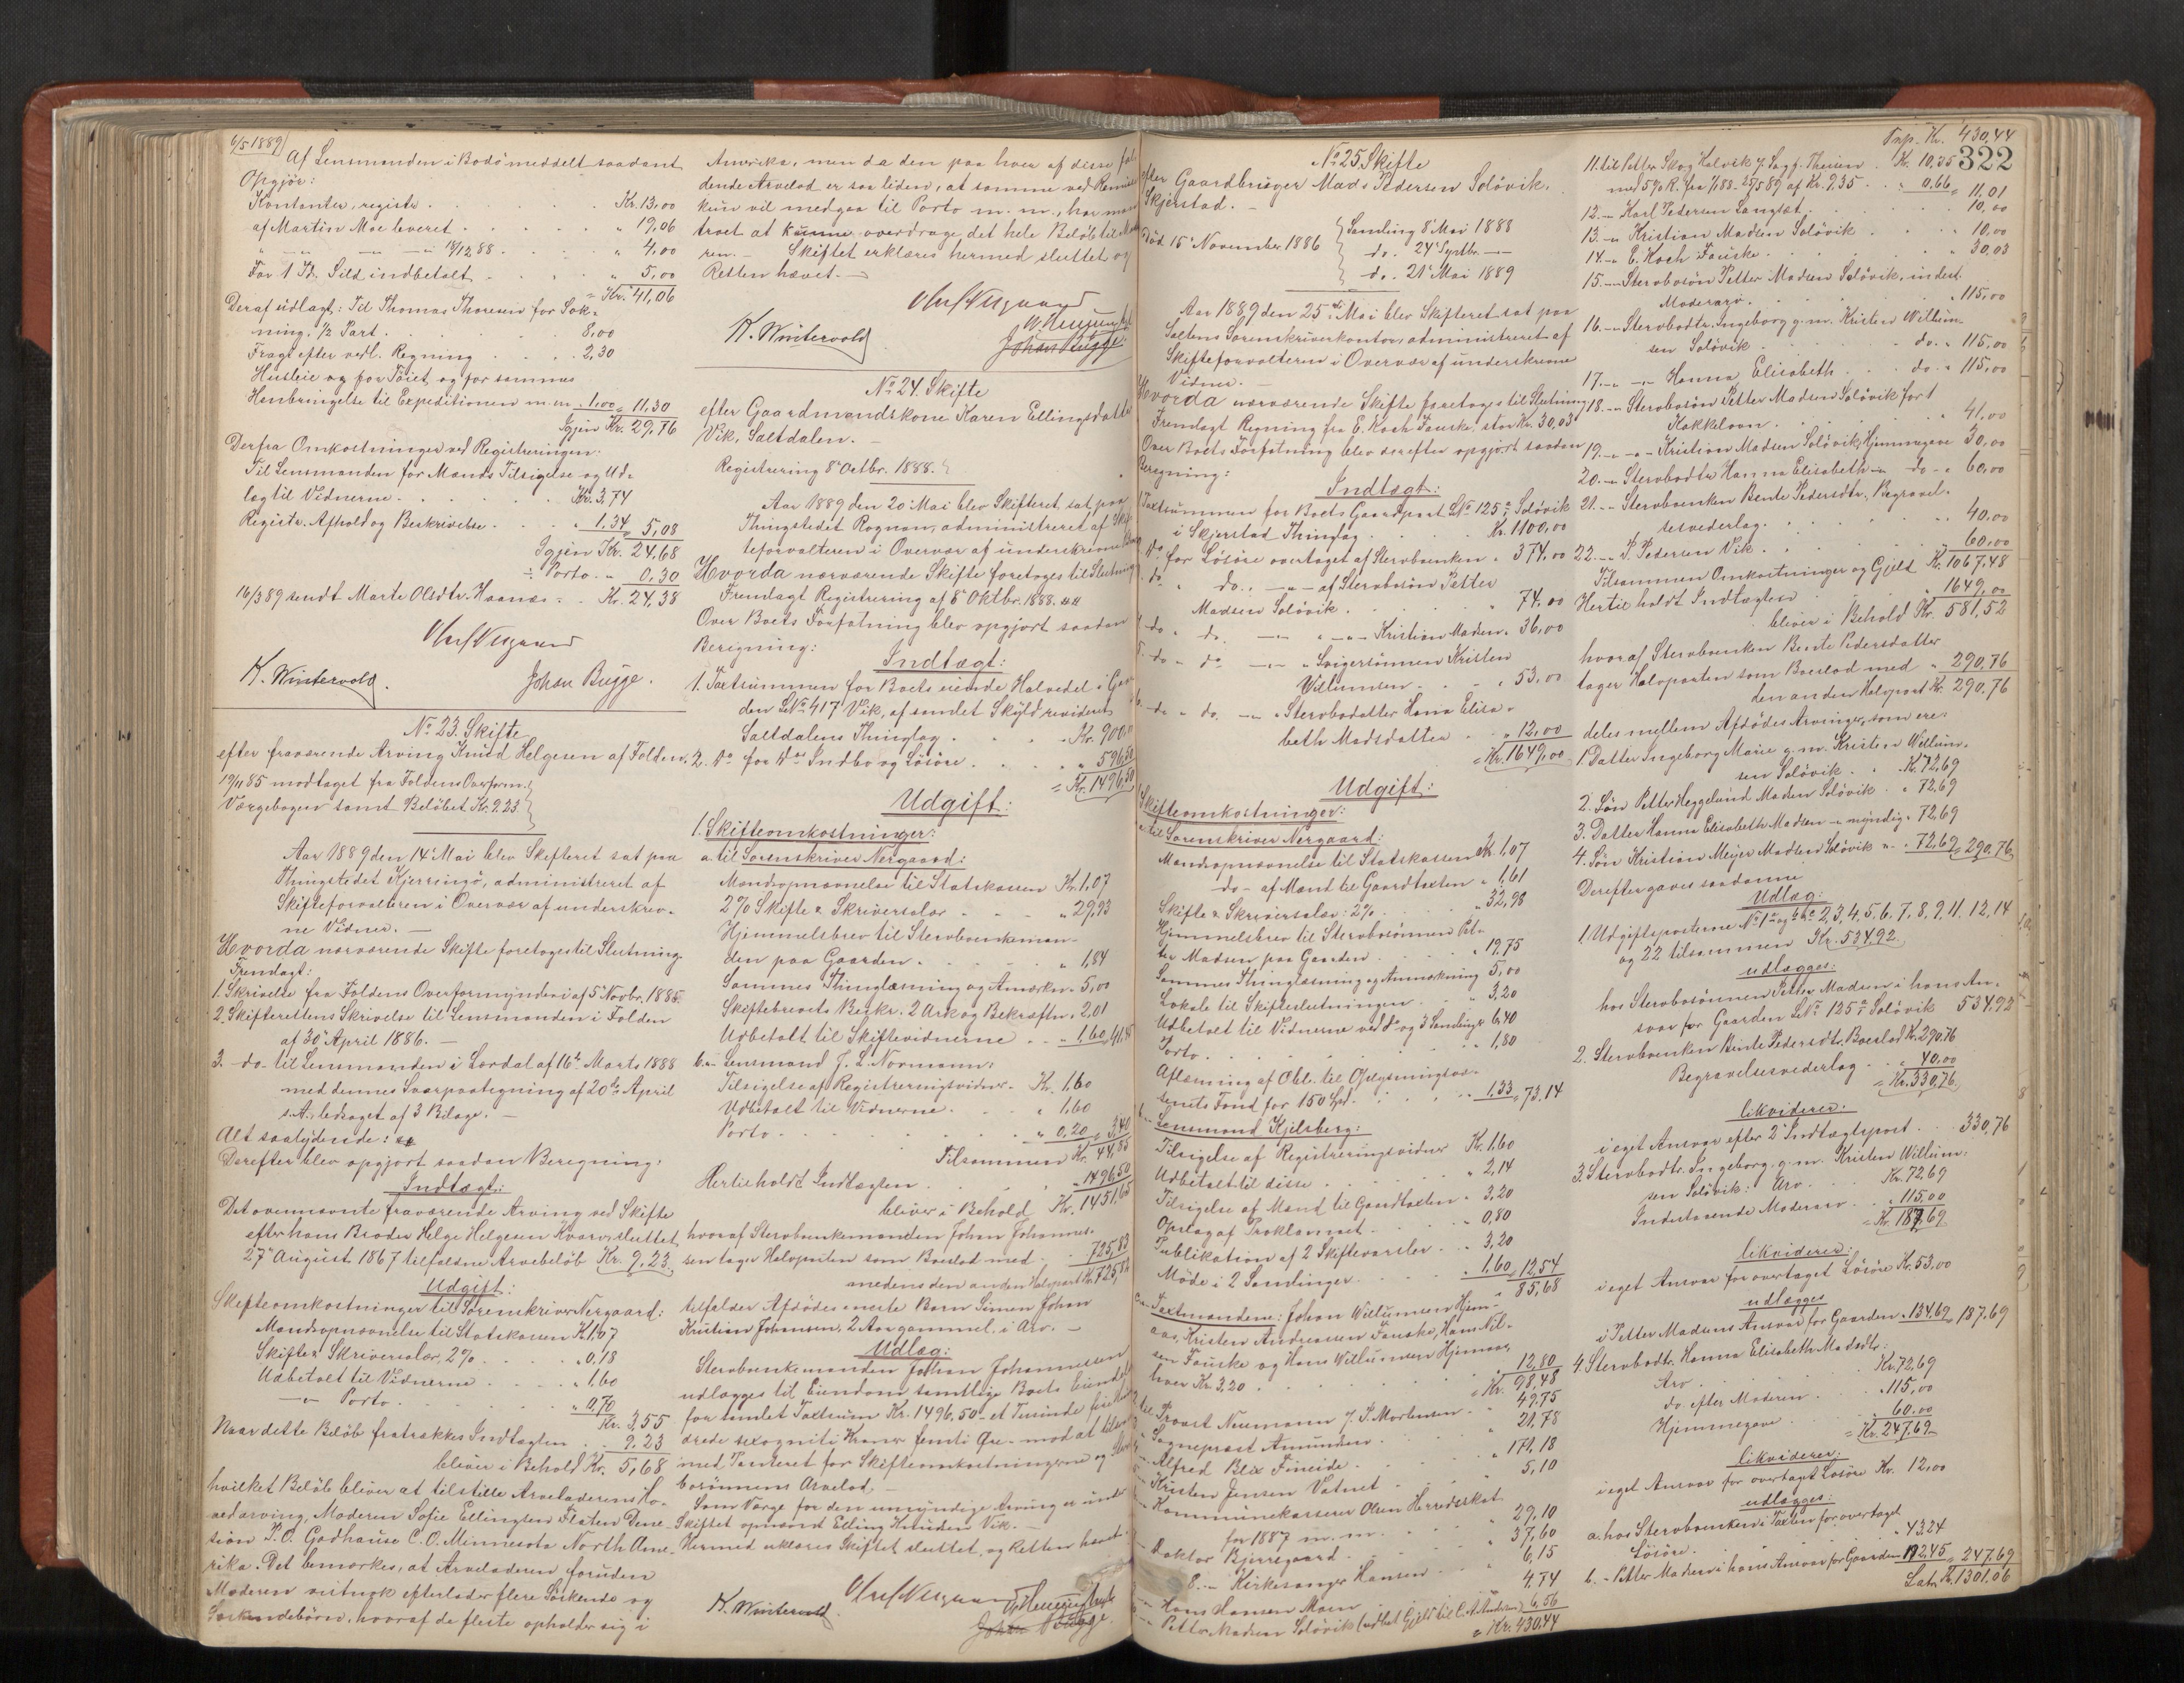 6/5 1889
Af Lensmanden i Bodö meddelt saadant
Opgjör:
Kontanter, registr. Kr. 13,00
af Martin Moe leveret " 19,06
" — " — 18/12 88. " 4,00
For 1 Td. Sild indbetalt " 5,00
= Kr. 41,06
Deraf udlagt: Til Thomas Thoresen for Sök-
ning, 1/2 Part. 8,00
Fragt efter vedl. Regning 2,30
Husleie og for Töiet og for sammes
Henbringelse til Expeditionen m.m. 1,00 = 11,30
Igjen Kr. 29,76
Derfra Omkostninger ved Registreringen:
Til Lensmanden for Mands Tilsigelse og Ud-
læg til Vidnerne. Kr. 3,74
Registr. Afhold og Beskrivelse. " 1,34 = 5,08
Igjen Kr. 24,68
÷ Porto " 0,30
16/3 89 sendt Marte Olsdtr. Haanes = Kr. 24,38
Oluf Nergaard
K. Wintervold. Johan Bugge.
No 23. Skifte
efter fraværende Arving Knud Helgesen af Folden.
19/11 85 modtaget fra Foldens Overform.
Værgebogen samt Beløbet Kr. 9.23
Aar 1889 den 14de Mai blev Skifteret sat paa
Thingstedet Kjerringö, administreret af
Skifteforvalteren i Overvær af underskrev-
ne Vidner. —
Hvorda nærværende Skifte foretoges til Slutning
Fremlagt:
1. Skrivelse fra Foldens Overformynderi af 5 Novbr. 1885.
2. Skifterettens Skrivelse til Lensmanden i Folden
af 30 April 1886. —
3. do til Lensmanden i Lavdal af 16de Marts 1888
med dennes Svarpaategning af 20de April
s.A. ledsaget af 3 Bilage. —
Alt saalydende:
Derefter blev opgjort saadan Beregning:
Indtægt:
Det ovennævnte fraværende Arving ved Skifte
efter hans Broder Helge Helgesen Kvarv, sluttet
27 August 1867 tilfaldne Arvebeløb Kr. 9,23.
Udgift:
Skifteomkostninger til Sorenskriver Nergaard:
Mandsopnævnelse til Statskassen K 1,07
Skifte & Skriversalær, 2% " 0,18
Udbetalt til Vidnerne " 1,60
— " Porto " 0,70
Kr. 3,55
Naar dette Beløb fratrækkes Indtægten 9,23
bliver i Behold Kr. 5,68
hvilket Beløb bliver at tilstille Arveladerens Ho-
vedarving, Moderen Sofie Ellingsen Flaten Dene-
sion P.O. Godhause C.O. Minnesota North Ame-
rika. Det bemærkes, at Arveladeren foruden
Moderen vistnok efterlader flere Søskende og
Søskendebörn, hvoraf de fleste opholder sig i
Amerika, men da den paa hver af disse fal-
dende Arvelod er saa liden, at samme ved Remisse
kun vil medgaa til Porto m. m., har man
troet at kunne overdrage det hele Beløb til Mode-
ren. — Skiftet erklæres hermed sluttet og
Retten hævet. —
Oluf Nergaard
K. Wintervold
Johan Bugge.
No 24. Skifte
efter Gaardmandskone Karen Ellingsdatter
Vik, Saltdalen. —
Registrering 8 Octbr. 1888.
Aar 1889 den 20 Mai blev Skifteret sat paa
Thingstedet Rognan, administreret af Skif-
teforvalteren i Overvær af underskrevne
Hvorda nærværende Skifte foretoges til Slutning
Fremlagt Registrering af 8 Oktbr. 1888.
Over Boets Forfatning blev opgjort saadan
Beregning:
Indtægt:
1. Taxtsummen for Boets eiende Halvedel i Gaar-
den LNo 417 Vik, af samlet Skyld revideret
Saltdalens Thinglag Kr. 900,00
2. Do for Do Indbo og Løsøre " 596,50
= Kr. 1496,50
Udgift:
1. Skifteomkostninger:
a. til Sorenskriver Nergaard:
Mandsopnævnelse til Statskassen Kr. 1,07
2% Skifte & Skriversalær " 29,93
Hjemmelsbrev til Stervboenkeman-
den paa Gaarden " 1,84
Sammes Thinglæsning og Anmærkn. " 5,00
Skiftebrevets Beskr. 2 Ark og Bekræftn. " 2,01
Udbetalt til Skiftevidnerne " 1,60 41,45
b. " Lensmand J. L. Normann:
Tilsigelse af Registreringsvidner. Kr. 1,60
Udbetalt til Vidnerne " 1,60
Porto " 0,20 = 3,40
Tilsammen Kr. 44,85
Hertil holdt Indtægten " 1496,50
bliver i Behold Kr. 1451,65
hvoraf Stervboenkemanden Johan Johannes-
sen tager Halvparten som Boeslod med 725,83
medens den anden Halvpart Kr. 725,82
tilfalder Afdödes eneste Barn Simon Johan
Kristian Johansen, 2 Aar gammel, i Arv. —
Udlæg:
Stervboenkemanden Johan Johannessen
udlægges til Eiendom samtlige Boets Eiendele
for samlet Taxtsum Kr. 1496,50 — et Tusinde fire Hun-
drede sexogniti Kroner femti Øre — mod at tilsvare
med Panteret for Skifteomkostningerne og Sterv-
bosønnens Arvelod. —
Som Værge for den umyndige Arving er under
Skiftet opnævnt Elling Knudsen Vik. —
Hermed erklæres Skiftet sluttet og Retten hævet.
Oluf Nergaard
K. Wintervold
Johan Bugge.
No 25 Skifte
efter Gaardbruger Mads Pedersen Solövik,
Skjerstad. —
Död 15 November 1886
Samling 8 Mai 1888
do. 24 Septbr. —
do. 21 Mai 1889
Aar 1889 den 25de Mai blev Skifteret sat paa
Saltens Sorenskriverkontor, administreret af
Skifteforvalteren i Overvær af underskrevne
Vidner. —
Hvorda nærværende Skifte foretoges til Slutning
Fremlagt Regning fra E. Koch Fauske, stor Kr. 30,03
Over Boets Forfatning blev derefter opgjort saadan
Beregning:
Indtægt:
1 Taxtsummen for Boets Gaardpart LNo 125a, Solövik
i Skjerstad Thinglag Kr. 1100,00
Do for Løsøre overtaget af Stervboenken " 374,00
do " do. — " — af Stervbosön Petter
Madsen Solövik " 74,00
do " do. — " — " — Kristian Madsen " 36,00
5. do " do — " — " Svigersönnen Kristen
Willumsen " 53,00
do " do. — " Stervbodatter Hana Elisa-
beth Madsdatter " 12,00
= Kr. 1649,00
Udgift:
Skifteomkostninger:
a. til Sorenskriver Nergaard:
Mandsopnævnelse til Statskassen Kr. 1,07
do — af Mænd til Gaardtaxten " 1,61
Skifte & Skriversalær: 2% " 32,98
Hjemmelsbrev til Stervbosönnen Pet-
ter Madsen paa Gaarden " 19,75
Sammes Thinglæsning og Anmærkning 5,00
Lokale til Skifteslutningen " 3,20
Udbetalt til Vidnerne ved do og 3 Samlinger 6,40
Porto " 1,80
Aflæsning af Obl. til Oplysningsvæ-
senets Fond for 150 Spd. " 1,33 = 73,14
b. Lensmand Kjelsberg:
Tilsigelse af Registreringsvidner Kr. 1,60
Udbetalt til disse " 2,14
Tilsigelse af Mænd til Gaardtaxten " 3,20
Opslag af Proklamaet " 0,80
Publikation af 2 Skiftevarsler " 3,20
Möde i 2 Samlinger " 1,60 = 12,54
85,68
c. Taxtmændene: Johan Willumsen Hjem-
aas, Kristen Andreassen Fauske, Hans Nil-
sen Fauske og Hans Willumsen Hjemaas,
hver Kr. 3,20 12,80
= Kr. 98,48
2. til Provst Neumann v/ P. Morbensen 49,75
Sogneprest Amundsen 21,78
Alfred Blix Fineide " 171,18
Kristen Jensen Vatnet 5,10
Kommunekasserer Olsen Herredsskat
for 1887 m. m. " 29,10
Doktor Bjerregaard 37,60
8. — Kirkesanger Hansen 6,15
Hans Hansen Moen 4,74
Petter Madsen Solövik (udbet. Gjeld til C. A. Andersen) 6,56
= Kr. 430,44
Trsp. Kr. 430,44
322
11. til Petter Skog Halvik v/ Sagf. Theisen Kr. 10,35
med 5% R. fra 1/1 88 - 25/5 89 af Kr. 9,35 " 0,66 = 11,01
12. — " Karl Pedersen Langsæt 10,00
13. — " Kristian Madsen Solövik " 10,00
14. — " E. Koch Fauske " 30,03
15. — " Stervbosön Petter Madsen Solövik, indest.
Moderarv " 115,00
16. — " Stervbodtr. Ingeborg g. m. Kristen Willum-
sen Solövik do. " 115,00
17. — " — " — Hanna Elisabeth do. " 115,00
18. — " Stervbosön Petter Madsen Solövik for 1
Kakkelovn " 41,00
19. — " — " Kristian Madsen Solövik, Hjemmegave 30,00
20. — " Stervbodtr. Hanna Elisabeth — " — do — " 60,00
21. — " Stervboenken Bente Pedersdtr., Begravel-
sesvederlag " 40,00
22. — " P. Pedersen Vik 60,00
Tilsammen Omkostninger og Gjeld Kr. 1067,48
Hertil holdt Indtægten 1649,00
bliver i Behold Kr. 581,52
hvoraf Stervboenken Bente Pedersdatter
tager Halvparten som Boeslod med " 290,76
den anden Halvpart Kr. 290,76
deles mellem Afdödes Arvinger, som ere:
1. Datter Ingeborg Marie g. m. Kristen Willum-
sen Solövik Kr. 72,69
2. Sön Petter Heggelund Madsen Solövik " 72,69
3. Datter Hanna Elisabeth Madsen — " myndig " 72,69
4. Sön Kristian Meyer Madsen Solövik " " 72,69 = 290,76
Derefter gaves saadanne
Udlæg:
1. Udgiftsposterne No 1a og b, 2, 3, 4, 5, 6, 7, 8, 9, 11, 12, 14
og 22 tilsammen Kr. 534,92.
udlægges:
hos Stervbosönnen Petter Madsen i hans An-
svar for Gaarden LNo 125a Solövik 534,92
2. Stervboenken Bente Pedersdtr. Boeslod Kr. 290,76
Begravelsesvederlag " 40,00
= Kr. 330,76
likviderer:
i eget Ansvar efter 2 Indtægtspost 330,76
3. Stervbodtr. Ingeborg g. m. Kristen Willum-
sen Solövik: Arv Kr. 72,69
Indestaaende Moderarv " 115,00
= Kr. 187,69
likviderer:
i eget Ansvar for overtaget Løsøre Kr. 53,00
udlægges
i Petter Madsens Ansvar for Gaarden " 134,69 = 187,69
4. Stervbodtr. Hanna Elisabeth Madsdtr.:
Arv Kr. 72,69
do. efter Moderen " 115,00
Hjemmegave 60,00
= Kr. 247,69
likviderer:
i eget Ansvar for overtaget Løsøre Kr. 12,00
udlægges:
a. hos Stervboenken i Taxten for overtaget
Løsøre " 43,24
b. — Petter Madsen i hans Ansvar for Gaarden 192,45 = 247,69
Lat. Kr. 1301,06